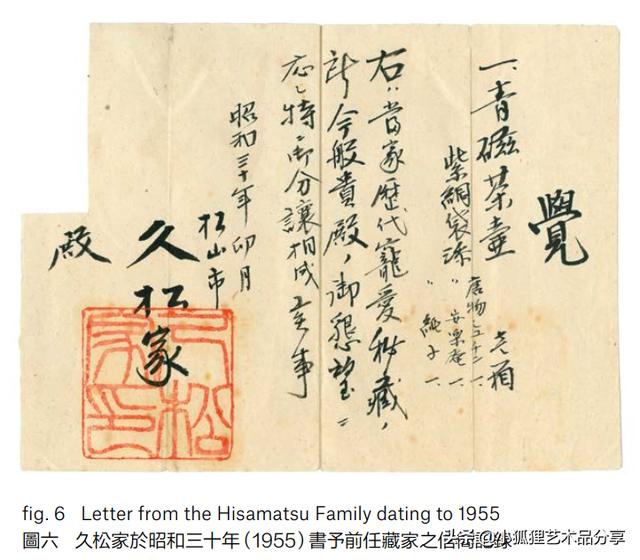 覺
一、青磁茶壷
紫綢袋添
唐物
安楽庵 一、
純子 一、
右ハ當家歴代寵愛秘藏ノ
今般貴殿ノ御懇望ニ
特ニ御分讓相成
昭和三十年 卯月
松山市
久松家
殿
久松家印
fig. 6 Letter from the Hisamatsu Family dating to 1955
圖六 久松家於昭和三十年（1955）書予前任藏家之
头条@小狐狸艺术品分享